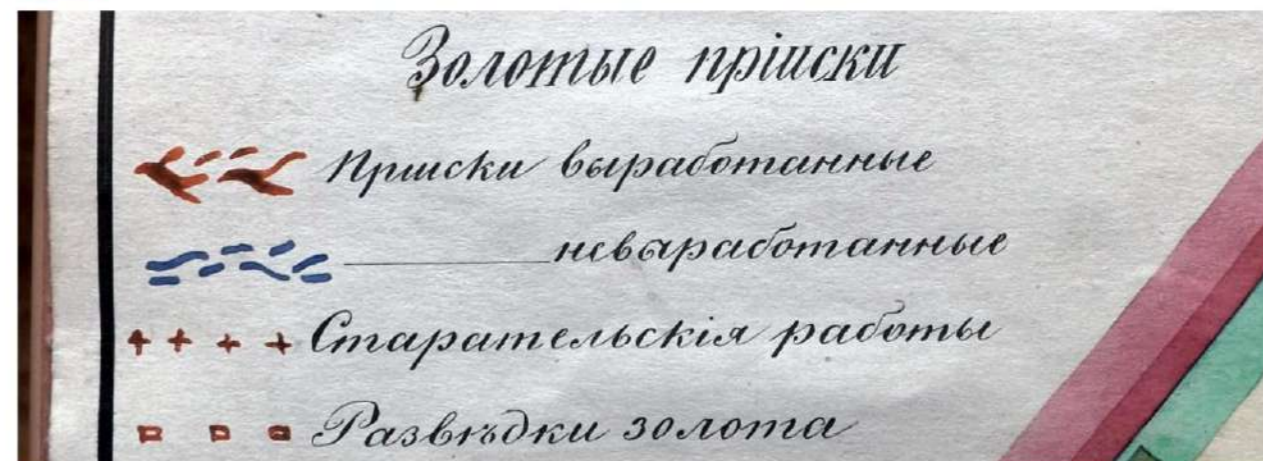 Золотые прiиски
Прiиски выработанные
невыработанные
Старательскiя работы
Развѣдки золота